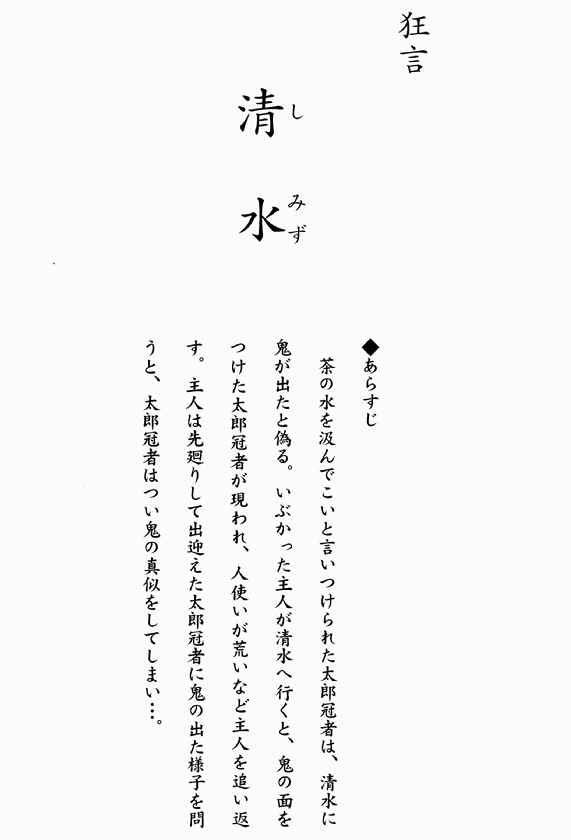 狂言
清水
しみず
◆あらすじ
茶の水を汲んでこいと言いつけられた太郎冠者は、清水に
鬼が出たと偽る。いぶかった主人が清水へ行くと、鬼の面を
つけた太郎冠者が現われ、人使いが荒いなど主人を追い返
す。主人は先廻りして出迎えた太郎冠者に鬼の出た様子を問
うと、太郎冠者はつい鬼の真似をしてしまい…。